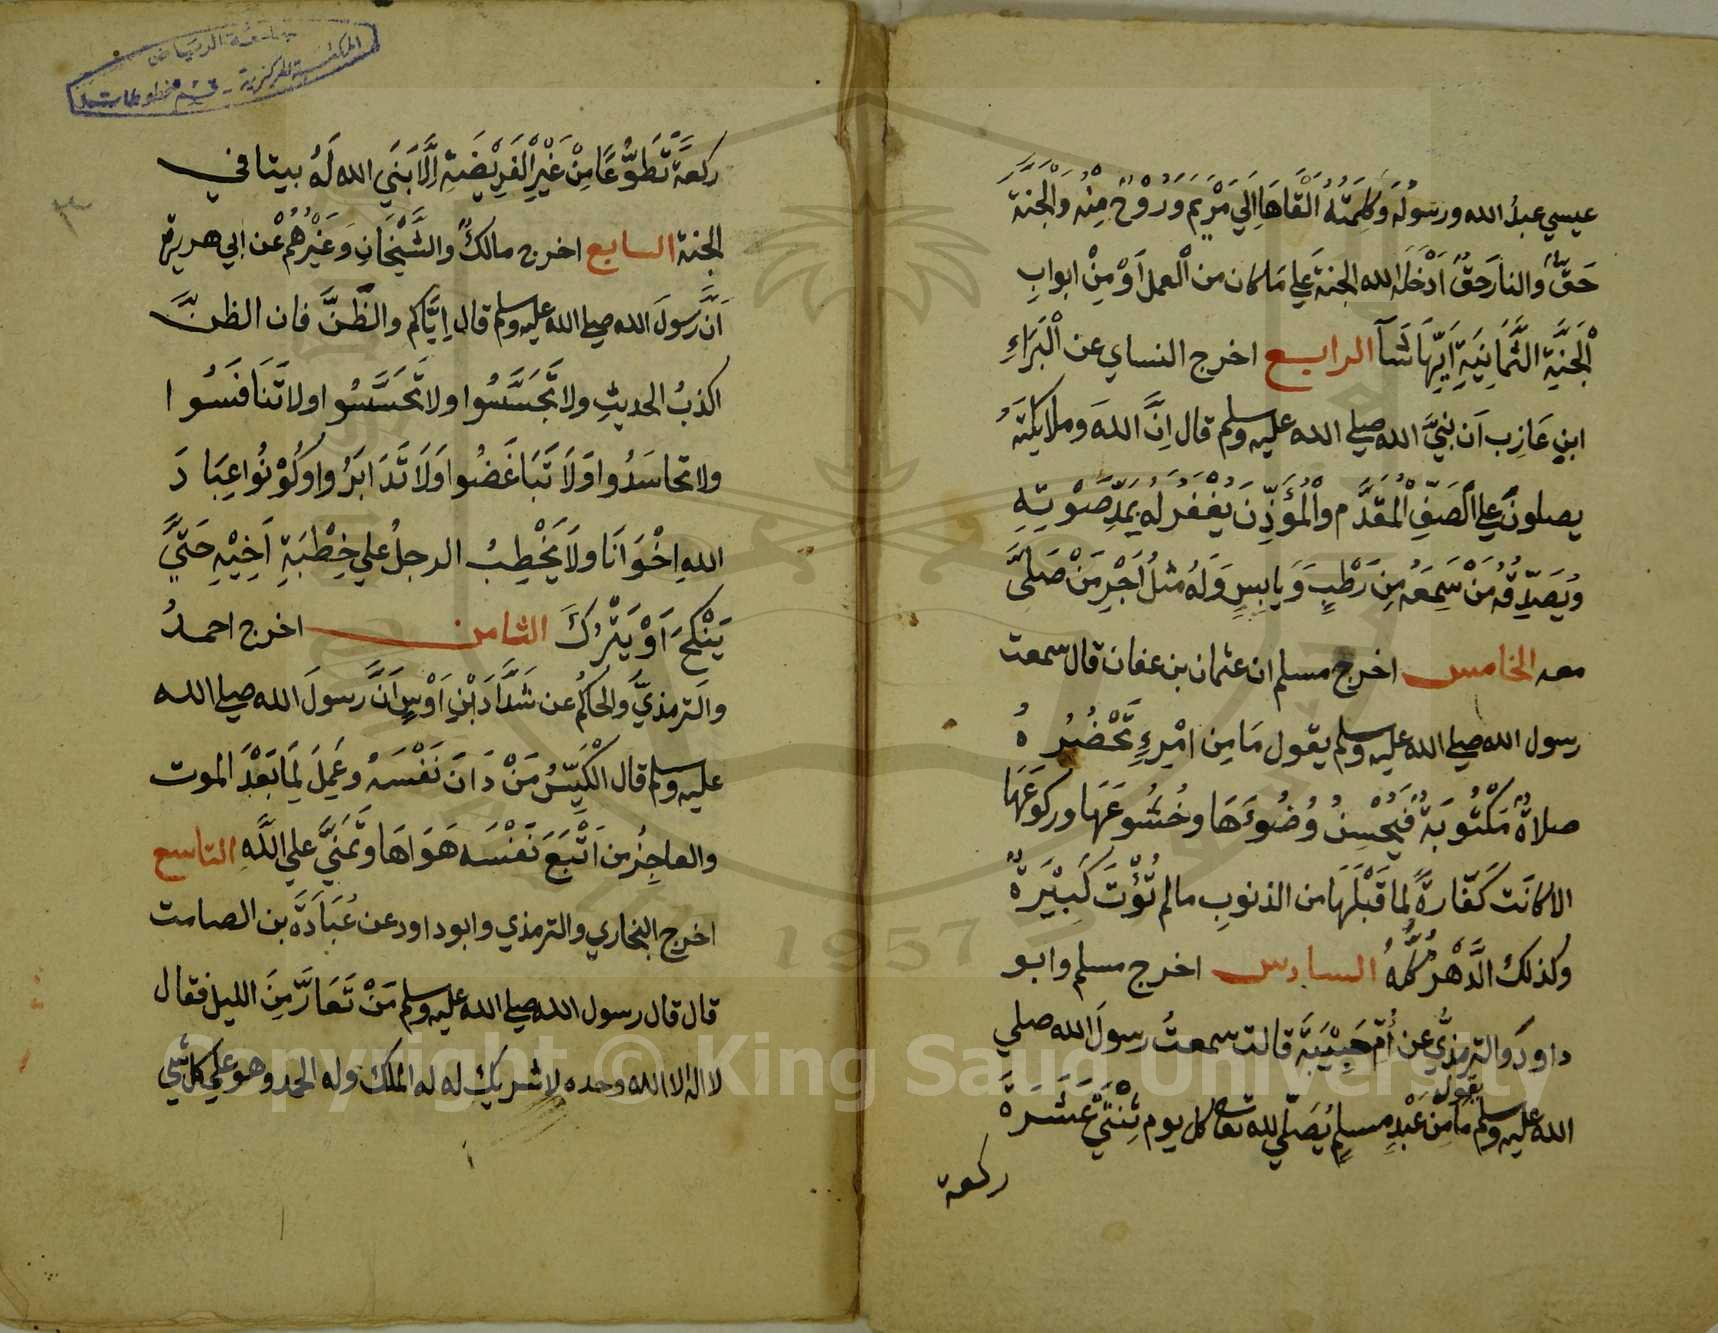 عيسي عبدُ الله ورسُولُه وَكَلِمَتُهُ اَلْقَاهَا اِلَي مَرْيَمَ وَرُوْحٌ مِنْهُ وَالْجَنَّةَ
حَقٌّ والنارَ حَقٌّ اَدْخَلَهُ الله الجنةَ عَلي مَا كان من الْعمل اَوْ مِنْ ابوابِ
الْجَنَّةِ الثَّمَانِيَةِ اَيِّهَا شَآ الرابع اخرج النساي عن الْبَرَاءِ
ابنِ عَازِب اَن نبيَّ الله صلي الله عليه وسلم قال اِنَّ اللهَ وملائِكَتَهُ
يصلونَ عَلي الصَفِّ الْمُقَدَّم والْمُؤَذِّنَ يُغْفَرُ لَهُ بِمَدِّ صَوْتِهِ
وَيُصَدِّقُهُ مَنْ سَمِعَهُ مِنَ رَطْبٍ وَيابِسٍ وَلَهُ مثلُ اَجْرِ مَنْ صَلَّى
معه الخامس اخرج مسلم ان عثمان بن عفان قال سمعت
رسول الله صلي الله عليه وسلم يقول مَا مِن امْرِءٍ تَحْضُرُهُ
صلاةٌ مَكْتُوبَةٌ فَيُحْسِنُ وُضُوءَهَا وخُشُوعَهَا وركوعَهَا
الا كانَت كَفَّارةً لِمَا قَبْلَهَا من الذنوبِ مالم تُؤْتَ كَبِيْرَةٌ
وكذلكَ الدَّهْرُ كُلُّهُ السادس اخرج مسلم وابو
داودَ والترمذيُّ عن اُمّ حَبِيْبَةَ قالت سمعتُ رسولَ الله صلي
الله عليه وسلم يقول مَا مِنْ عَبْدٍ مسلمٍ يُصَلّي لله تعالى كل يوم ثِنْتَيْ عَشَرَةَ
ركعة
جامعة الرياض
المكتبة المركزية - قسم مخطوطات
ركعةً تَطَوُّعًا مِنْ غَيْرِ الْفَرِيْضَةِ اِلَّا بَنَي الله لَهُ بيتا في
الجنة السابع اخرج مالكٌ والشَّيْخَانِ وَغَيْرُهُمْ عن ابي هريرة
اَنَّ رسولَ الله صلي الله عليه وسلم قال اِيَّاكم والظَّنَّ فان الظنَّ
اكذبُ الحديثِ ولا تَجَسَّسُوا ولا تَحَسَّسُوا ولا تَنَافَسُوا
ولا تحاسَدُوا وَلَا تَبَاغَضُوا وَلَا تَدَابَرُوا وكُوْنُوا عِبَادَ
اللهِ اِخْوَانَا ولَا يَخْطِبُ الرجلُ علي خِطْبَةِ اَخِيْهِ حَتَّي
يَنْكِحَ اَوْ يَتْرُكَ الثامن اخرج احمدُ
والترمذيُّ والحاكمُ عن شَدَّاد بْنِ اَوْسٍ اَنَّ رسولَ الله صلي الله
عليه وسلم قال الْكَيِّسُ مَنْ دَانَ نَفْسَهُ وعَمِلَ لِمَا بَعْدَ الموت
والعاجِزُ من اَتْبَعَ نَفْسَه هَوَاهَا وتَمَنَّي علي اللَّهِ التاسع
اخرج البخاري والترمذي وابو داود عن عُبَادَةَ بن الصامت
قال قال رسول الله صلي الله عليه وسلم مَنْ تَعَارَّ مِنَ الليل فقال
لا اله الا الله وحده لا شريك له له الملك وله الحمد وهو علي كل شي
1957
Copyright © King Saud University